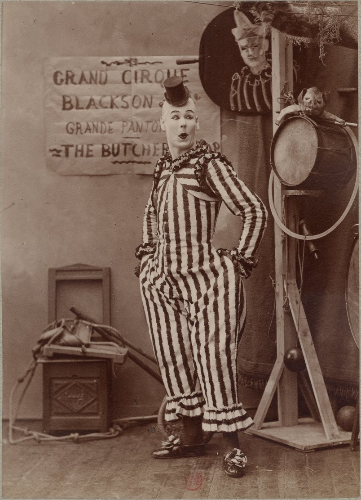 GRAND CIRQUE
BLACKSON
GRANDE
THE BUTCHER